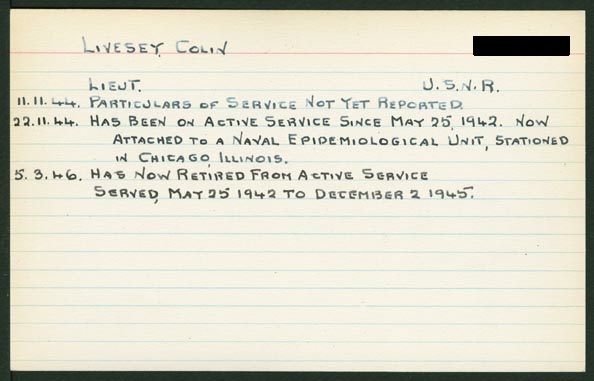 LIVESEY, COLIN
LIEUT. U.S.N.R.
11.11.44. PARTICULARS OF SERVICE NOT YET REPORTED.
22.11.44. HAS BEEN ON ACTIVE SERVICE SINCE MAY 25, 1942. NOW
ATTACHED TO A NAVAL EPIDEMIOLOGICAL UNIT, STATIONED
IN CHICAGO, ILLINOIS.
5.3.46. HAS NOW RETIRED FROM ACTIVE SERVICE
SERVED, MAY 25 1942 TO DECEMBER 2 1945.